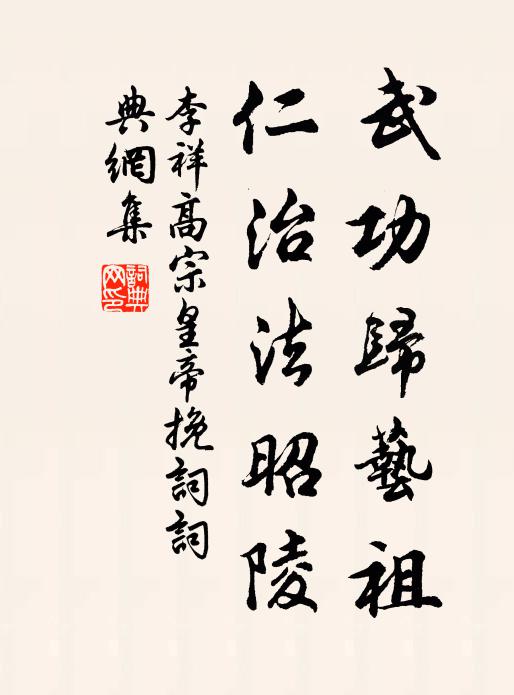 武功歸藝祖
仁治法昭陵
李祥高宗皇帝挽詞詞
典網集
詞典網印